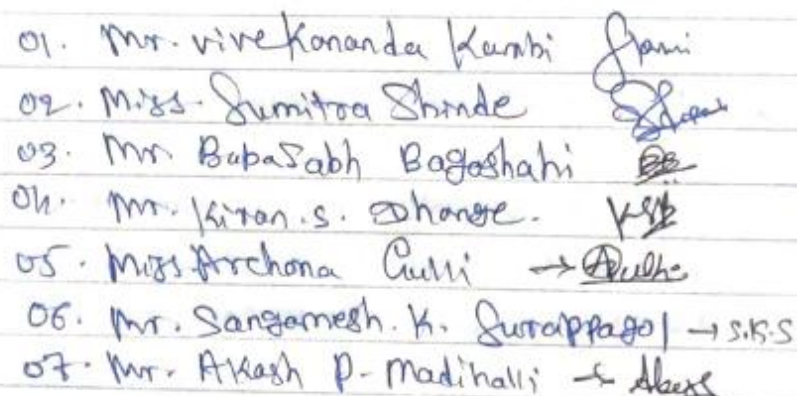 01. Mr. Vivekananda Kambi
02. Miss. Sumitra Shinde
03. Mr. BabaSabh Bagashahi BB
04. Mr. Kiran. S. Dhange. KSD
05. Miss Archana Gulli →
06. Mr. Sangamesh. K. Surappagol → S.K.S
07. Mr. Akash P. Madihalli →